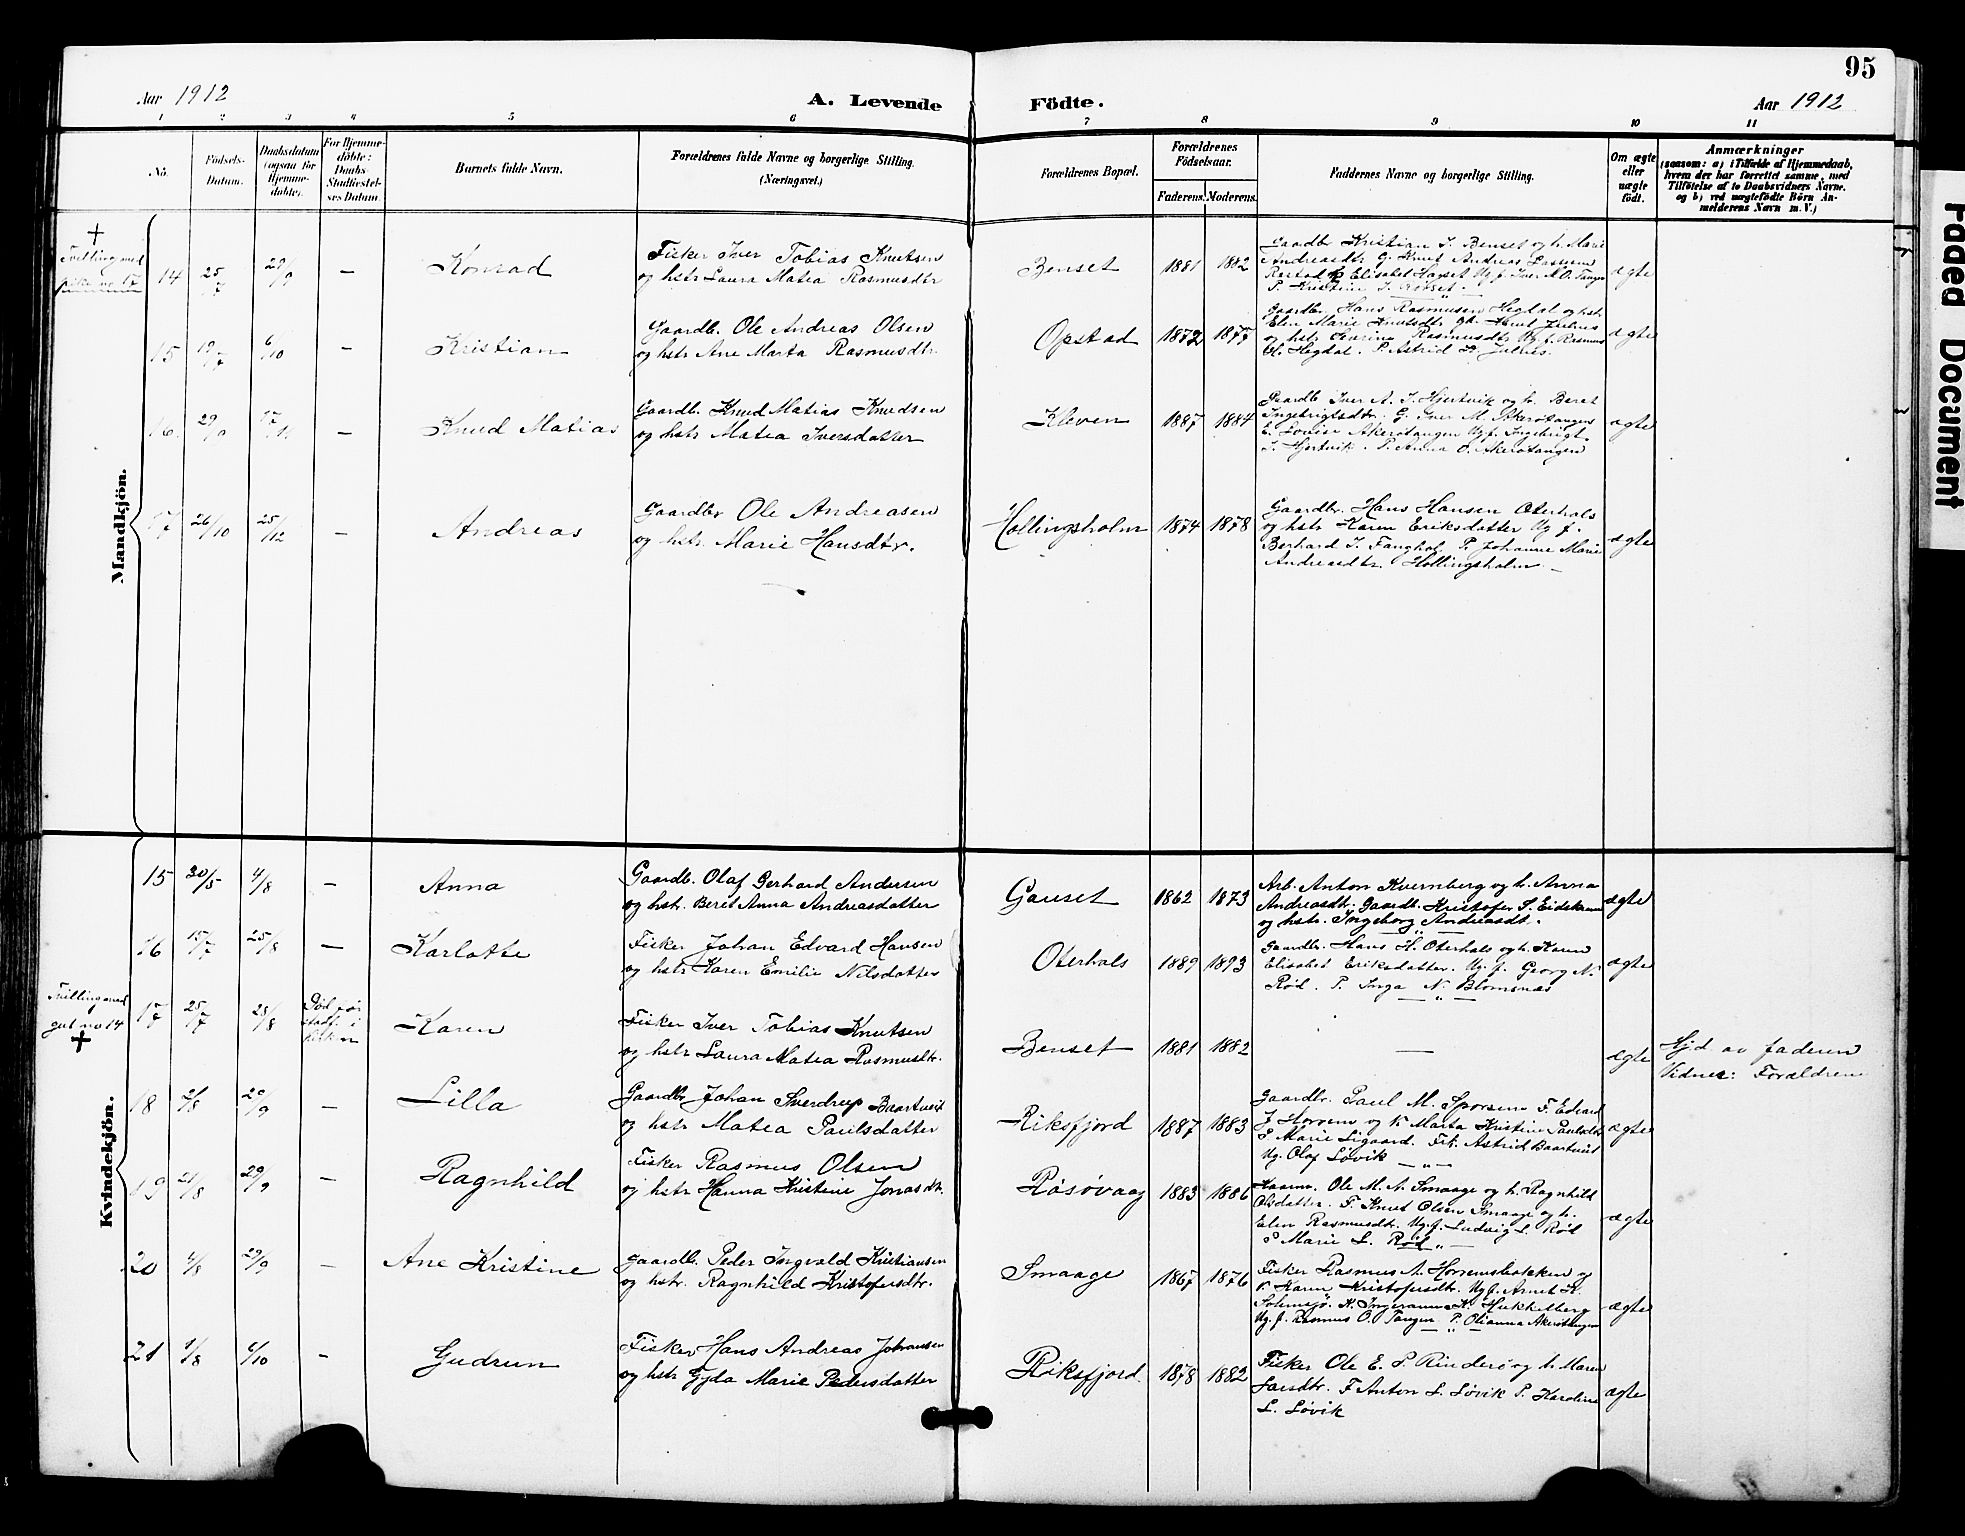 95
Aar 1912
A. Levende Födte.
Aar 1912
1 2 3 4 5 6 7 8 9 10 11
No.
Födsels-
Datum.
Daabsdatum
(ogsaa for
Hjemme-
döbte).
For Hjemme-
döbte:
Daabs-
Stadfæstel-
ses Datum.
Barnets fulde Navn.
Forældrenes fulde Navne og borgerlige Stilling.
(Næringsvei.)
Forældrenes Bopæl.
Forældrenes
Födselsaar.
Faderens. Moderens.
Faddernes Navne og borgerlige Stilling.
Om ægte
eller
uægte
født.
Anmærkninger
(saasom: a) i Tilfælde af Hjemmedaab,
hvem der har forrettet samme, med
Tilföielse af to Daabsvidners Navne.
og b) ved uægtefödte Börn An-
melderens Navn m. V.)
Faded Document
Mandkjön.
Tvilling med
pike no 17
14 25/7 29/9 — Konrad
Fisker Iver Tobias Knutsen
og hstr Laura Matea Rasmusdtr
Benset 1881 1882
Gaardbr Kristian J. Benset og h. Marie
Andreasdtr. G. Knut Andreas
Elisabet Ug. f. Iver A. O. Tangen
P. Kristine J.
ægte
15 19/7 6/10 — Kristian
Gaardb. Ole Andreas Olsen
og hstr Ane Marta Rasmusdtr.
Opstad 1872 1877
Gaardbr Hans Rasmusen Hegdal og hstr.
Elen Marie Knutsdtr. Knut Julius
og hstr Rasmusdtr Ug f. Rasmus
H. Hegdal. P. Astrid K. Julius.
ægte
16. — Knud Matias
Gaardb. Knud Matias Knudsen
og hstr Matea Iversdatter
Kleven 1887 1884
Gaardb Iver A. J. Hjertvik og h. Beret
Ingebrigtsdtr. G. Iver M. Akerøtangen
E. Lovise Akerøtangen Ug f. Ingebrigt
J. Hjertvik. P. Anna O. Akerøtangen
ægte
17 26/10 25/12 — Andreas
Gaardbr Ole Andreasen
og hstr. Marie Hansdtr.
Hollingsholm 1874 1878
Gaardbr. Hans Hansen Oterhals
og hstr Karen Eriksdatter Ug f.
Berhard J. P. Johanne Marie
Andreasdtr. Hollingsholm —
ægte
Kvindekjön.
15 30/5 4/8 — Anna
Gaardb. Olaf Gerhard Andersen
og hst. Berit Anna Andreasdatter
Gauset 1862 1873
Arb. Anton Kvernberg og h. Anna
Andreasdtr. Gaardb. Kristofer S.
og hstr. Ingeborg Andreasdt.
ægte
16 15/7 25/8 — Karlotte
Fisker Johan Edvard Hansen
og hstr Karen Emilie Nilsdatter
Oterhals 1889 1893
Gaardbr. Hans H. Oterhals og h. Karen
Elisabet Eriksdatter. Ug. f. Georg N.
Rød. P. Inga N. Blomsnæs
ægte
Tvilling med
gut no 14
17 25/7 28/8 Død før
stadf. i
kirken
Karen
Fisker Iver Tobias Knutsen
og hstr Laura Matea Rasmusdtr.
Benset 1881 1882 — ægte
Hj.d. av faderen
Vidner: Forældrene
18 2/8 29/9 — Lilla
Gaardbr Johan Sverdrup Baartveit
og hstr Matea Paulsdatter
Riksfjord 1887 1883
Gaardbr. Paul M. Sporsem F. Edvard
J Horrem og K Marta Kristine Paulsdtr
P Marie Ligaard. Frk. Astrid Baartveit
Ug. Olaf Løvik — " —
ægte
19 21/8 29/9 — Ragnhild
Fisker Rasmus Olsen
og hstr Hanna Kristine Jonasdtr.
Råsøvaag 1883 1886
Ole M. A. Smaage og h. Ragnhild
Olsdatter. F. Knut Olsen Smaage og h.
Elen Rasmusdtr. Ug f. Ludvig L. Rød
P Marie L. Rød " —
ægte
20 4/8 29/9 — Ane Kristine
Gaardb. Peder Ingvald Kristiansen
og hstr. Ragnhild Kristofersdtr.
Smaage 1867 1876
Fisker Rasmus A. Horremsbakken og
K Karen Kristofersdtr. Ug f. Arnt K.
K. Ingeranna K. Hukkelberg
Ug. f. Rasmus O. Tangen P. Olianna Akerøtangen
ægte
21 1/8 6/10 — Gudrun
Fisker Hans Andreas Johansen
og hstr Gyda Marie Pedersdatter
Riksfjord. 1878 1882
Fisker Ole E. P. Rinderø og h. Maren
Larsdtr. F Anton L. Løvik P. Karoline
L. Løvik
ægte